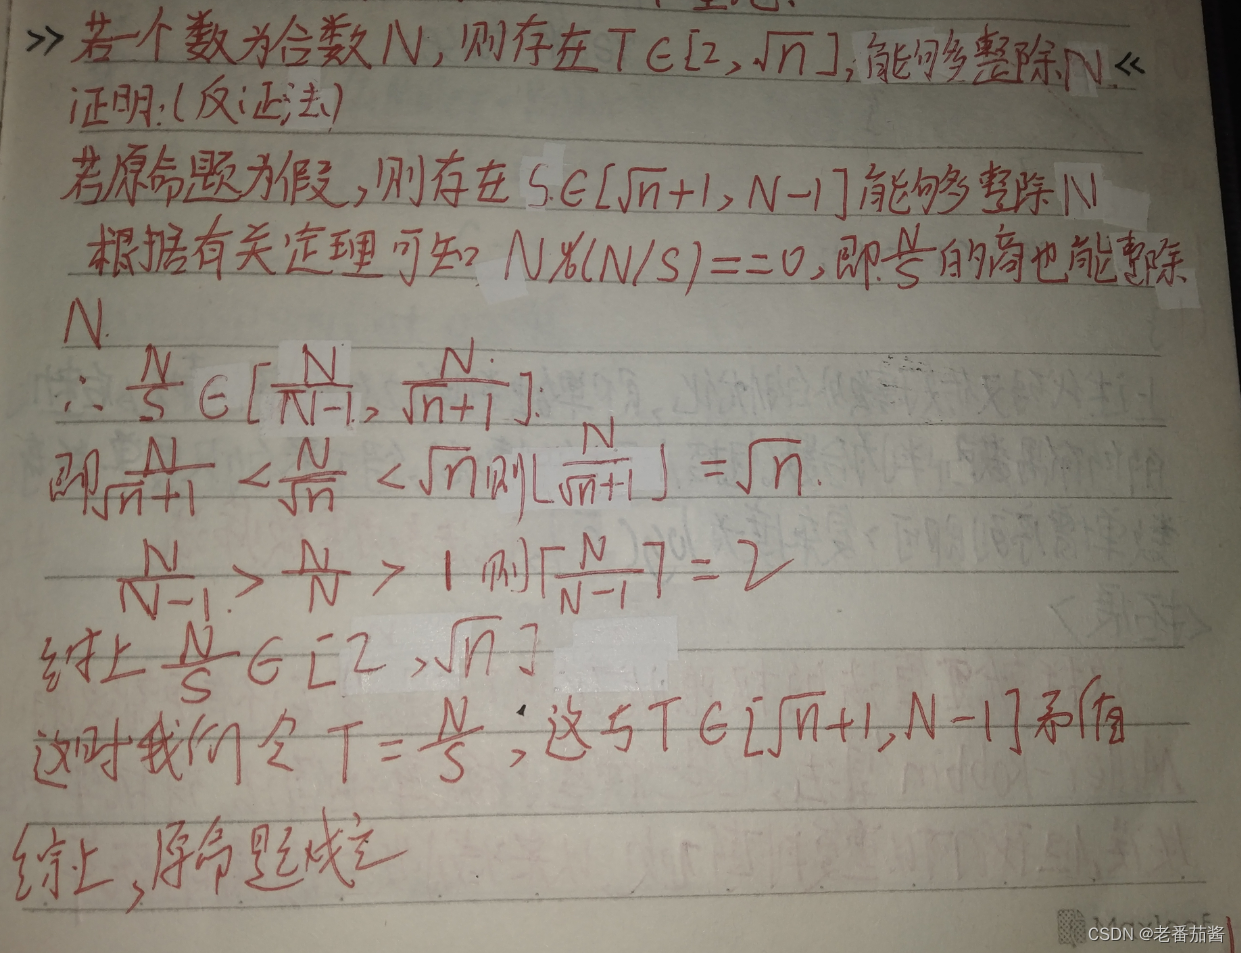 >> 若一个数为合数N,则存在T∈[2,√n],能够整除N. <<
证明:(反证法)
若原命题为假,则存在S∈[√n+1,N-1]能够整除N
根据有关定理可知 N%(N/S)==0,即N/S的商也能整除
N.
∴ N/S ∈ [N/(N-1), N/(√n+1)].
即 N/(√n+1) < N/√n < √n 则⌊N/(√n+1)⌋ = √n.
N/(N-1) > N/N > 1 则⌈N/(N-1)⌉ = 2
综上 N/S ∈ [2,√n]
这时我们令 T = N/S,这与T∈[√n+1,N-1]矛盾
综上,原命题成立
CSDN @老番茄酱